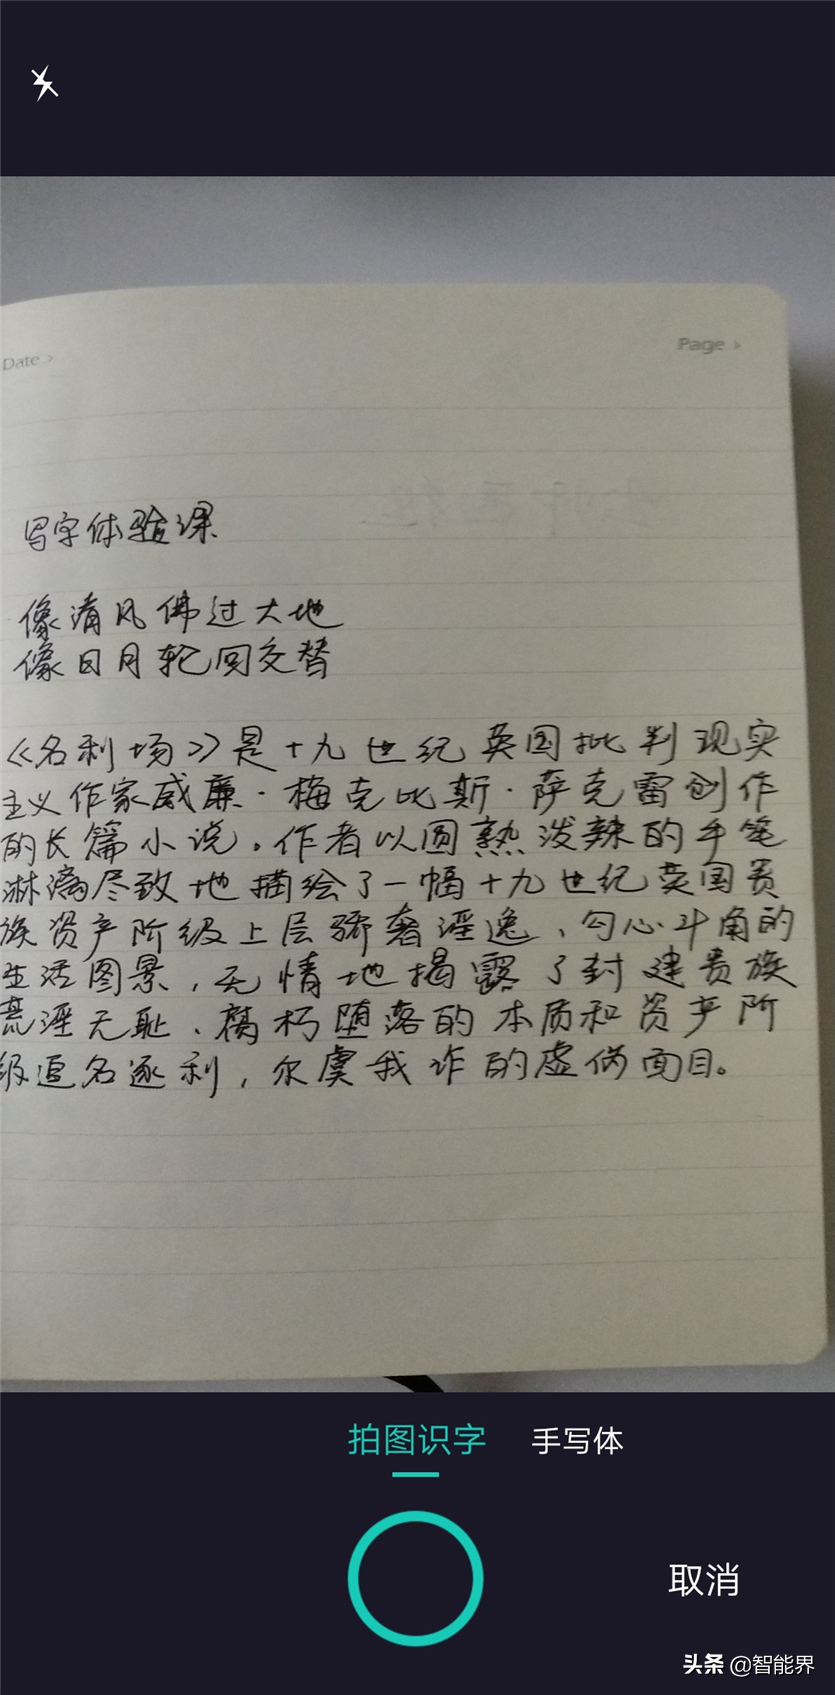 Date ›
Page ›
写字体验课
像清风佛过大地
像日月轮回交替
《名利场》是十九世纪英国批判现实
主义作家威廉·梅克比斯·萨克雷创作
的长篇小说。作者以圆熟泼辣的手笔
淋漓尽致地描绘了一幅十九世纪英国贵
族资产阶级上层骄奢淫逸、勾心斗角的
生活图景，无情地揭露了封建贵族
荒淫无耻、腐朽堕落的本质和资产阶
级追名逐利，尔虞我诈的虚伪面目。
拍图识字 手写体
取消
头条 @智能界